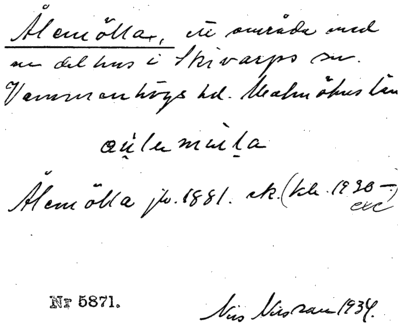 Ålemölla, ett område med
en del hus i Skivarps sn.
Vemmenhögs hd. Malmöhus län
Ålemölla jb. 1881. ek. (kbr. 1930–)
Nr 5871.
Nils Nilsson 1934.